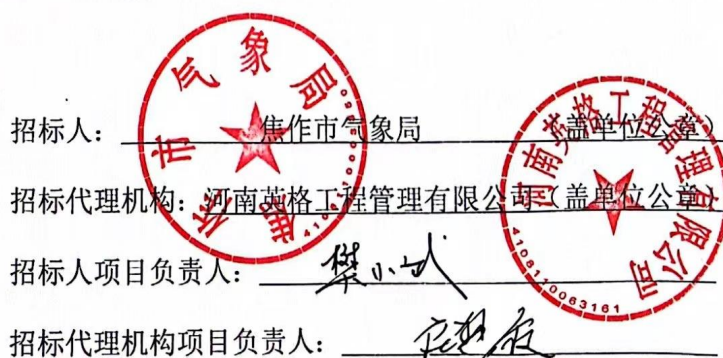 招标人：焦作市气象局（盖单位公章）
招标代理机构：河南英格工程管理有限公司（盖单位公章）
招标人项目负责人：
招标代理机构项目负责人：
焦作市气象局
河南英格工程监理有限公司
4108110063161